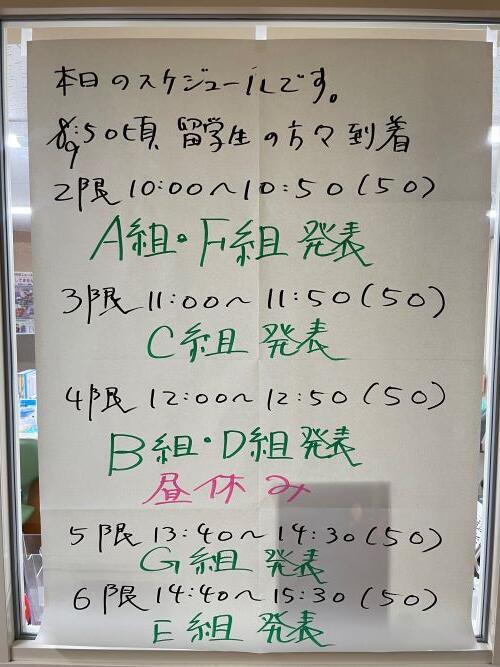 本日のスケジュールです。
9:50頃 留学生の方々到着
2限 10:00〜10:50(50)
A組・F組 発表
3限 11:00〜11:50(50)
C組 発表
4限 12:00〜12:50(50)
B組・D組 発表
昼休み
5限 13:40〜14:30(50)
G組 発表
6限 14:40〜15:30(50)
E組 発表